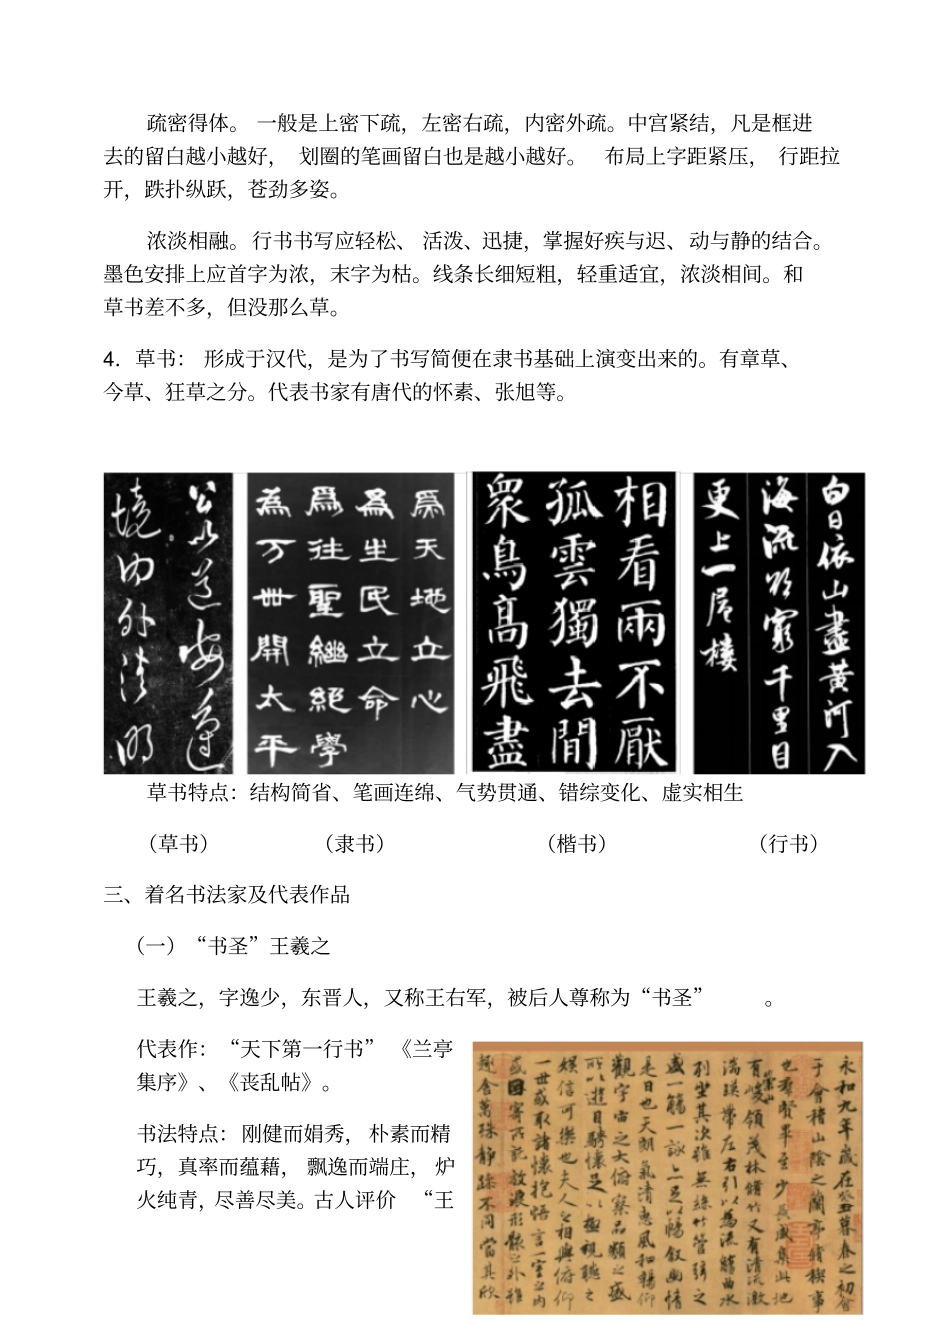 疏密得体。 一般是上密下疏，左密右疏，内密外疏。中宫紧结，凡是框进
去的留白越小越好， 划圈的笔画留白也是越小越好。 布局上字距紧压， 行距拉
开，跌扑纵跃，苍劲多姿。
浓淡相融。行书书写应轻松、 活泼、迅捷，掌握好疾与迟、动与静的结合。
墨色安排上应首字为浓，末字为枯。线条长细短粗，轻重适宜，浓淡相间。和
草书差不多，但没那么草。
4．草书： 形成于汉代，是为了书写简便在隶书基础上演变出来的。有章草、
今草、狂草之分。代表书家有唐代的怀素、张旭等。
為天地立心
為生民立命
為往聖繼絕學
為万世開太平
相看兩不厭
孤雲獨去閒
眾鳥高飛盡
白日依山盡黃河入
海流欲窮千里目
更上一层楼
草书特点：结构简省、笔画连绵、气势贯通、错综变化、虚实相生
（草书） （隶书） （楷书） （行书）
三、着名书法家及代表作品
（一）“书圣”王羲之
王羲之，字逸少，东晋人，又称王右军，被后人尊称为“书圣” 。
代表作：“天下第一行书” 《兰亭
集序》、《丧乱帖》。
书法特点： 刚健而娟秀， 朴素而精
巧，真率而蕴藉， 飘逸而端庄， 炉
火纯青，尽善尽美。古人评价 “王
永和九年歲在癸丑暮春之初會
于會稽山陰之蘭亭脩稧事
也羣賢畢至少長咸集此地
有崇山峻領茂林脩竹又有清流激
湍暎帶左右引以為流觴曲水
列坐其次雖無絲竹管弦之
盛一觴一詠亦足以暢敘幽情
是日也天朗氣清惠風和暢仰
觀宇宙之大俯察品類之盛
所以遊目騁懷足以極視聽之
娛信可樂也夫人之相與俯仰
一世或取諸懷抱悟言一室之內
或因寄所託放浪形骸之外雖
趣舍萬殊靜躁不同當其欣